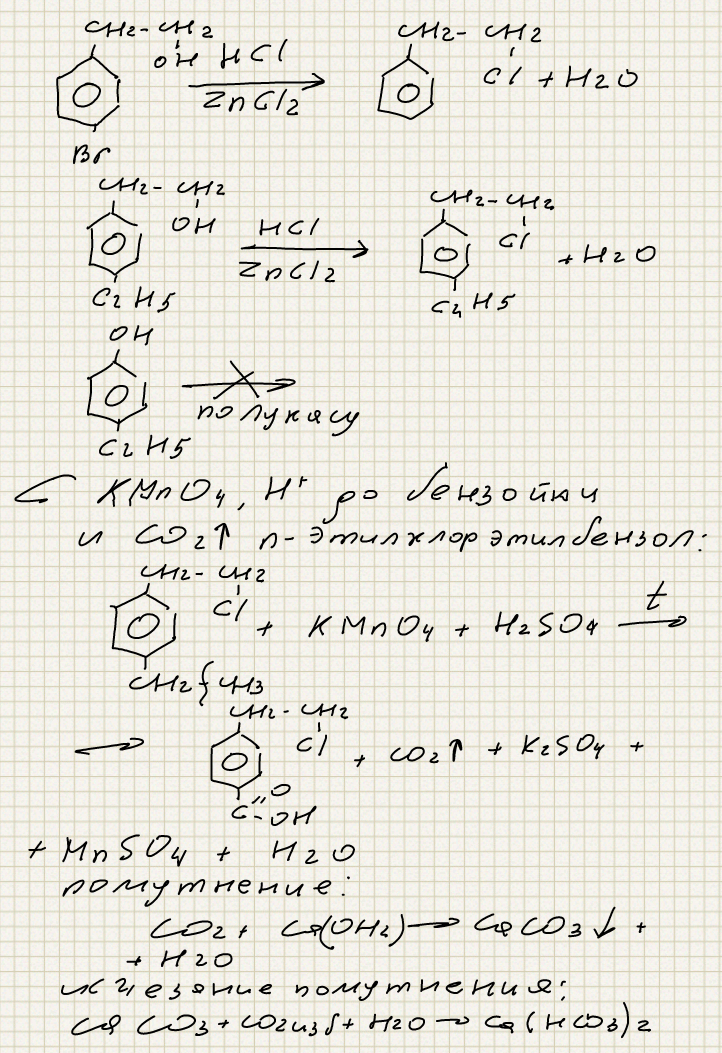 CH2- CH2
OH HCl
ZnCl2
Br
CH2- CH2
Cl + H2O
CH2- CH2
OH HCl
ZnCl2
C2H5
CH2- CH2
Cl + H2O
C2H5
OH
C2H5
полукясу
C KMnO4, H+ до бензойки
и CO2↑ п-этилхлорэтилбензол:
CH2- CH2
Cl + KMnO4 + H2SO4 t →
CH2 CH3
→ CH2- CH2
Cl + CO2↑ + K2SO4 +
C=O
-OH
+ MnSO4 + H2O
помутнение:
CO2 + Ca(OH2) → CaCO3↓ +
+ H2O
исчезяние помутнения:
CaCO3 + CO2изб + H2O → Ca(HCO3)2